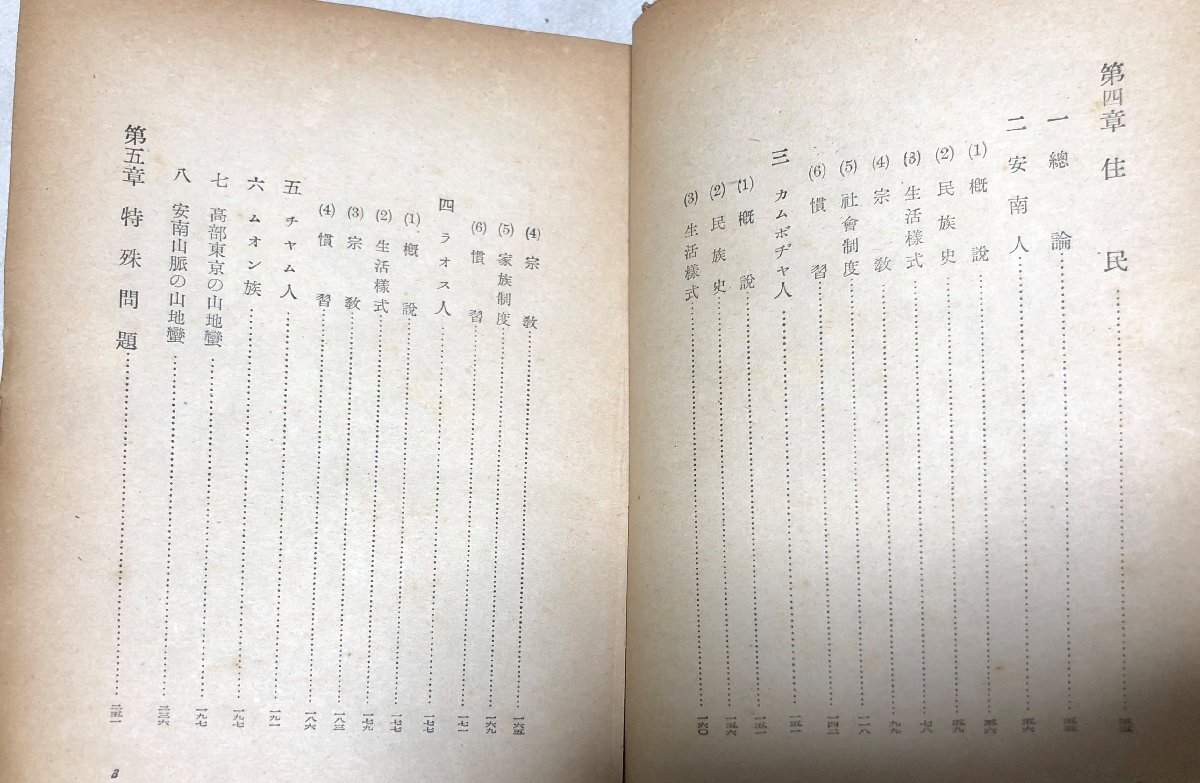 第四章 住民……五五
一 總論……五五
二 安南人……五六
(1) 概說……五六
(2) 民族史……五九
(3) 生活樣式……七八
(4) 宗敎……九九
(5) 社會制度……一一八
(6) 慣習……一四二
三 カムボヂヤ人……一五一
(1) 概說……一五一
(2) 民族史……一五六
(3) 生活樣式……一六〇
(4) 宗敎……一六五
(5) 家族制度……一六九
(6) 慣習……一七一
四 ラオス人……一七七
(1) 概說……一七七
(2) 生活樣式……一七九
(3) 宗敎……一八三
(4) 慣習……一八六
五 チヤム人……一九一
六 ムオン族……一九七
七 高部東京の山地蠻……一九七
八 安南山脈の山地蠻……二三六
第五章 特殊問題……二五一
3